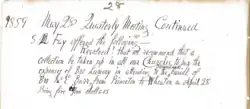 28
1859 May 28 Quarterly Meeting Continued
S. W. Fay offered the following—
Resolved that we recommend that a
collection be taken up in all our Churches to pay the
expenses of Bro Lumry in attending to the funeral of
Bro from Princeton to Wheaton in April 28
Being five dollars